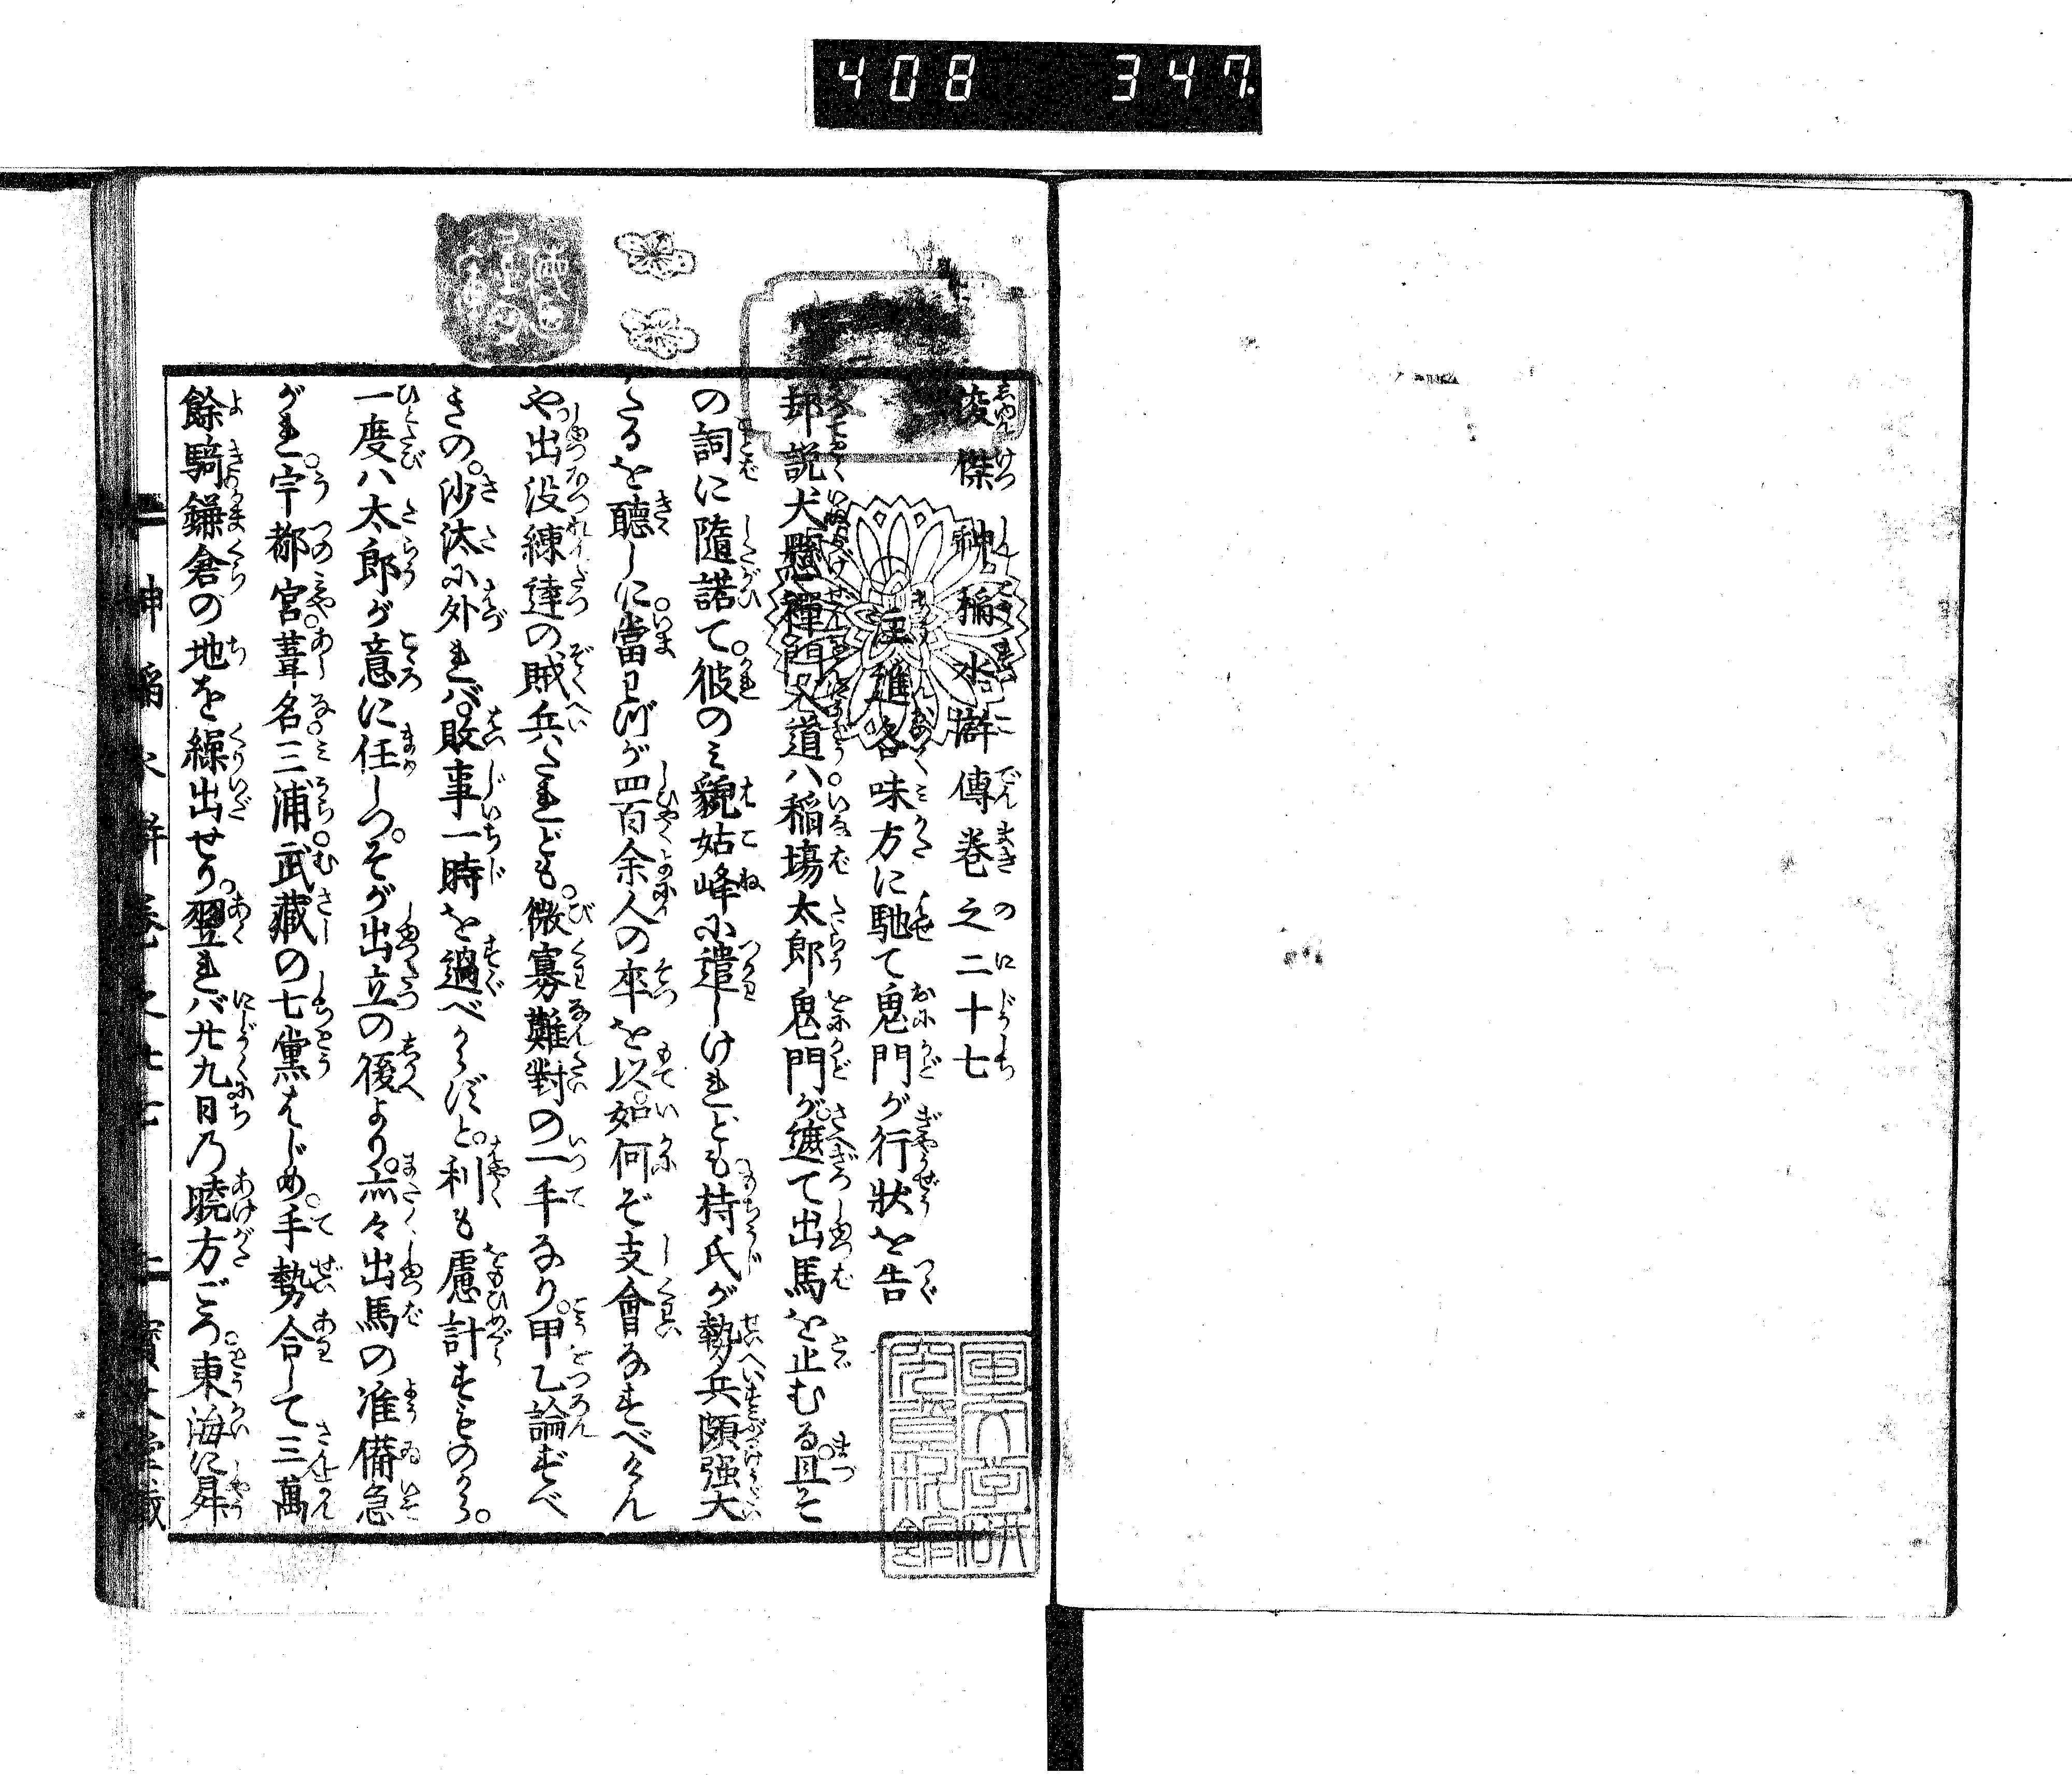 408 347
俊傑神稲水滸傳巻之二十七
注進各味方に馳て鬼門が行狀を告
却説犬懸禪門入道ハ稲塲太郎鬼門が遮て出馬を止むる。且そ
の詞に隨諾て。彼のミ藐姑峰に遣しけれども持氏が勢兵頗强大
たるを聽しに。當わづが四百余人の卒を以。如何ぞ支會なすべけん
や。出没練達の賊兵たれども。微寡難對の一手なり。甲乙論ずべ
きの。沙汰に外れバ。敗事一時を過べからずと。利も慮計すものから。
一度ハ太郎が意に任しつ。そが出立の後より。点々出馬の准備急
がれ。宇都宮。葦名。三浦。武藏の七黨はじめ。手勢合して三萬
餘騎鎌倉の地を繰出せり。翌れバ廾九日乃曉方ごろ。東海に昇
神稲水滸巻之廿七